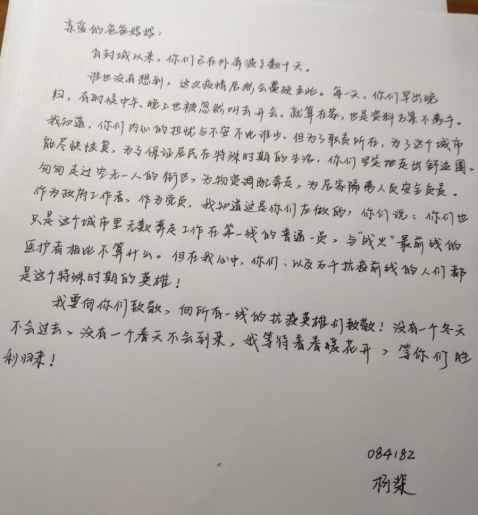 亲爱的爸爸妈妈：
自封城以来，你们已在外奔波了数十天。
谁也没有想到，这次疫情居然会蔓延至此。每一天，你们早出晚
归，有时候中午、晚上也被忽然叫去开会。就算在家，也是资料方案不离手。
我知道，你们内心的担忧与不安不比谁少。但为了职责所在，为了这个城市
能尽快恢复，为了保证居民在特殊时期的生活，你们坚定地走出舒适圈。
匆匆走过空无一人的街区，为物资调配奔走，为居家隔离人员安全负责。
作为政府工作者，作为党员，我知道这是你们应做的，你们说：你们也
只是这个城市里无数奔走工作在第一线的普通一员，与“战火”最前线的
医护者相比不算什么。但在我心中，你们、以及万千抗疫前线的人们都
是这个特殊时期的英雄！
我要向你们致敬，向所有一线的抗疫英雄们致敬！没有一个冬天
不会过去，没有一个春天不会到来，我等待着春暖花开，等你们胜
利归来！
084182
杨